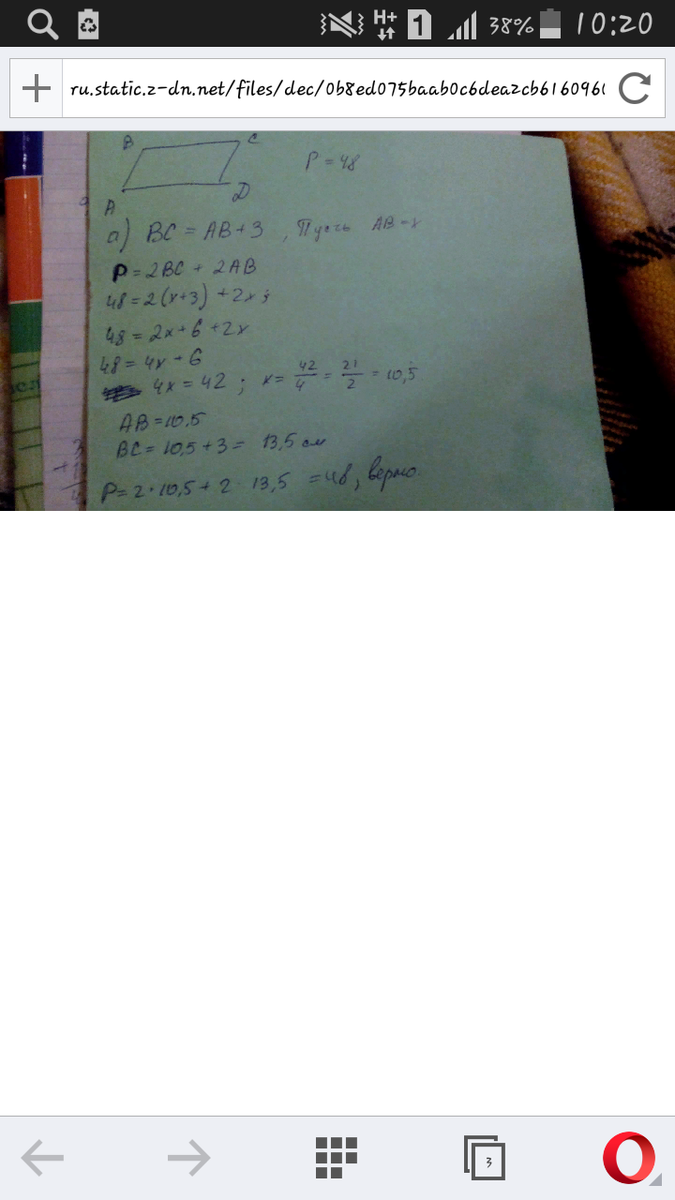 H+ 1 38% 10:20
ru.static.z-dn.net/files/dec/0b8ed075baab0c6dea2cb616096
B C
P = 48
A D
а) BC = AB+3 , Пусть AB = x
P = 2BC + 2AB
48 = 2(x+3) + 2x;
48 = 2x + 6 + 2x
48 = 4x + 6
4x = 42 ; x = 42/4 = 21/2 = 10,5
AB = 10,5
BC = 10,5 + 3 = 13,5 см
P = 2 · 10,5 + 2 · 13,5 = 48, верно.
3